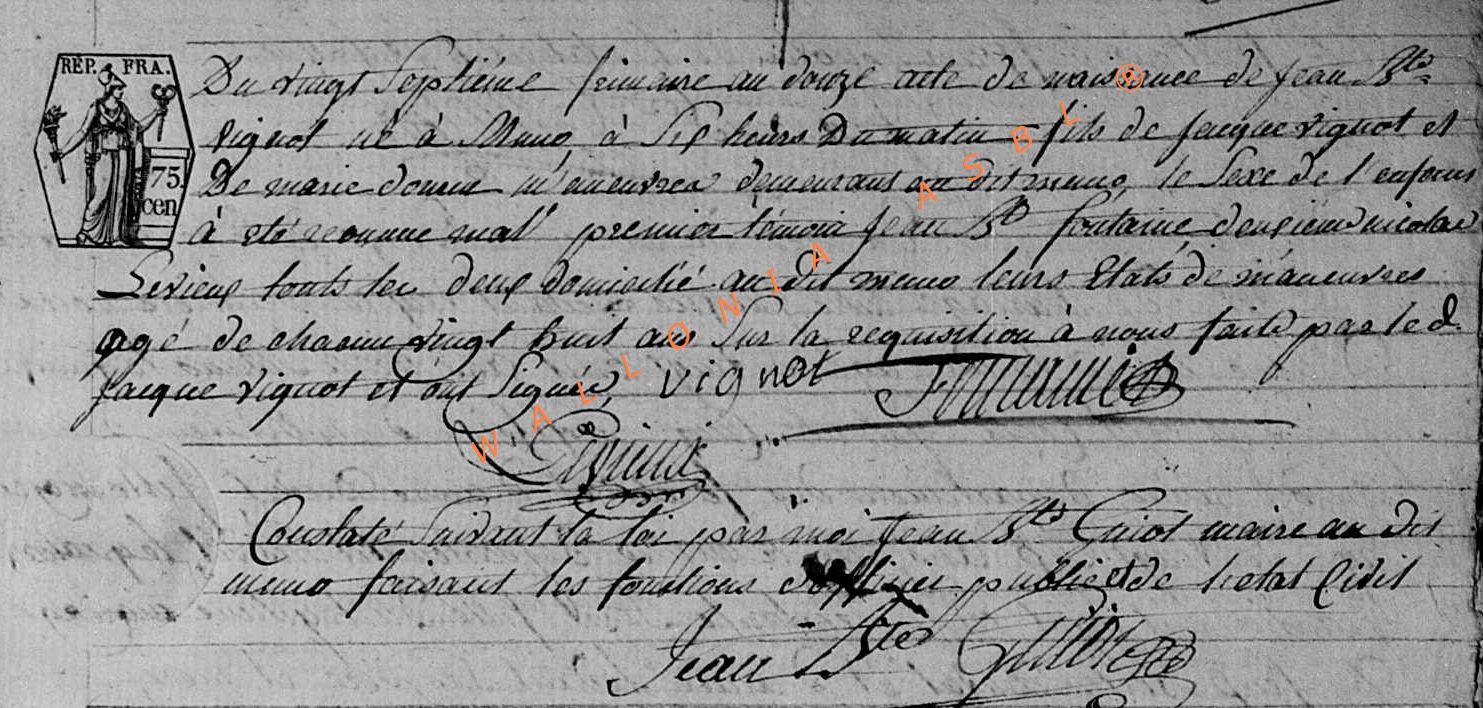 RÉP. FRA.
75.
cen
Du vingt Septiéme frimaire an douze acte de naissence de jean Bte
vignot né à Muno à Six heurs Du matin fils de jacque vignot et
De marie maneuvrea demeurant au dit muno, le Sexe de l'enfans
à eté reconnue mal premier témoin jean Bte fontaine deuxiem nicolas
Levieux touts les deux domicilié au dit muno leurs Etats de maneuvres
agé de chacun vingt huit ans Sur la requisition à nous faite par led.
jacque vignot et ont Signée, vignot
Levieux
Constaté Suivant la loi par moi jean Bte Guiot maire au dit
muno faisant les fonctions d'officier publicet de l'etat Civil
Jean Bte Guiot
WALLONIA ASBL ®